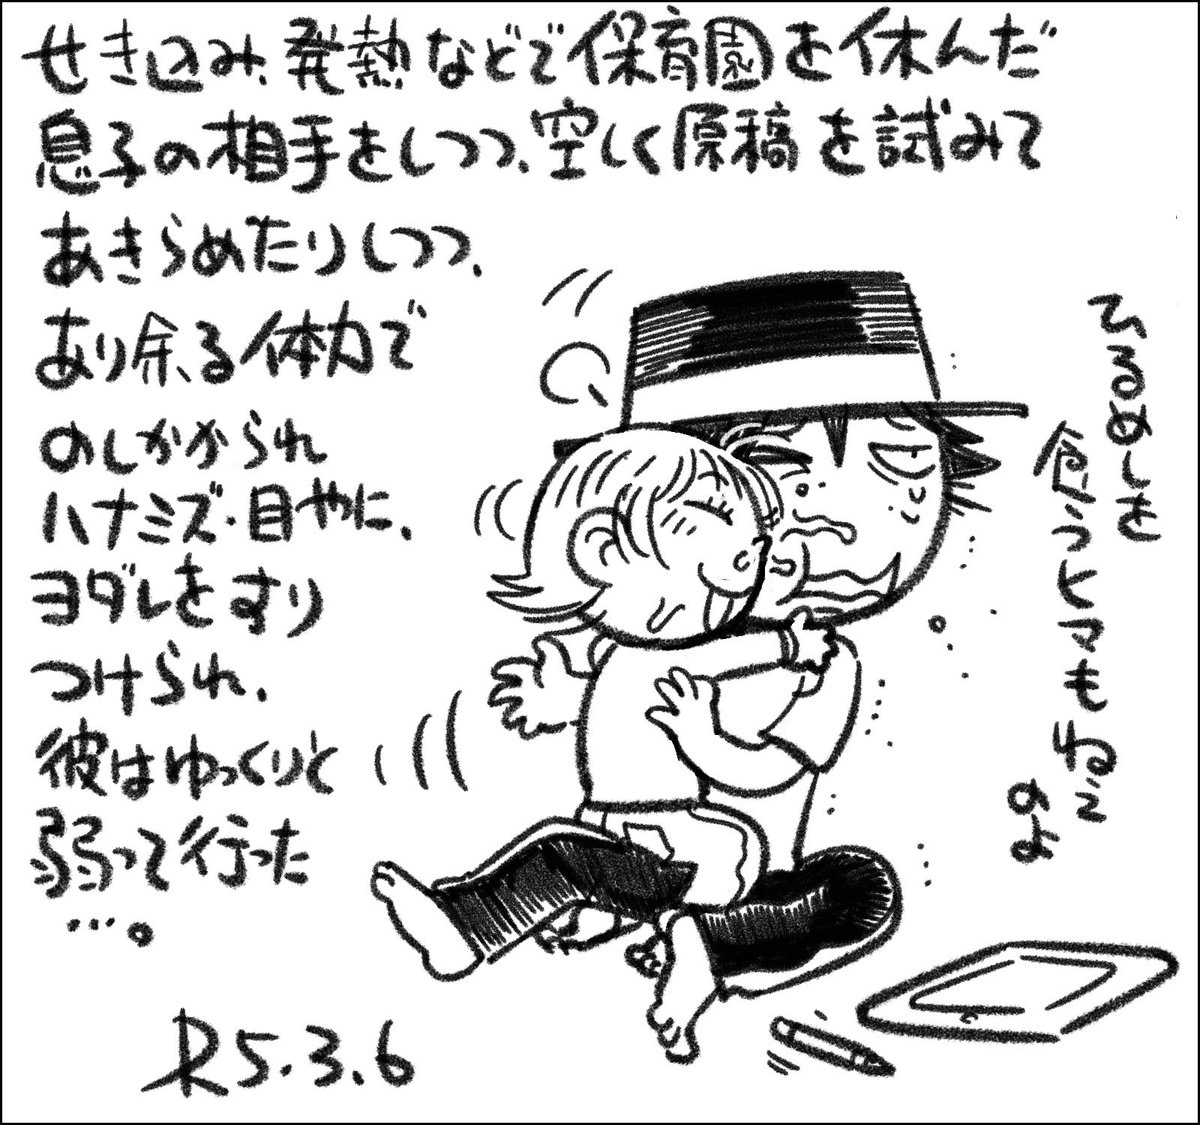 せき込み、発熱などで保育園を休んだ
息子の相手をしつつ、空しく原稿を試みて
あきらめたりしつつ、
あり余る体力で
のしかかられ
ハナミズ・目やに、
ヨダレをすり
つけられ、
彼はゆっくりと
弱って行った
…。
ひるめしを
食うヒマも
のよ
R5.3.6